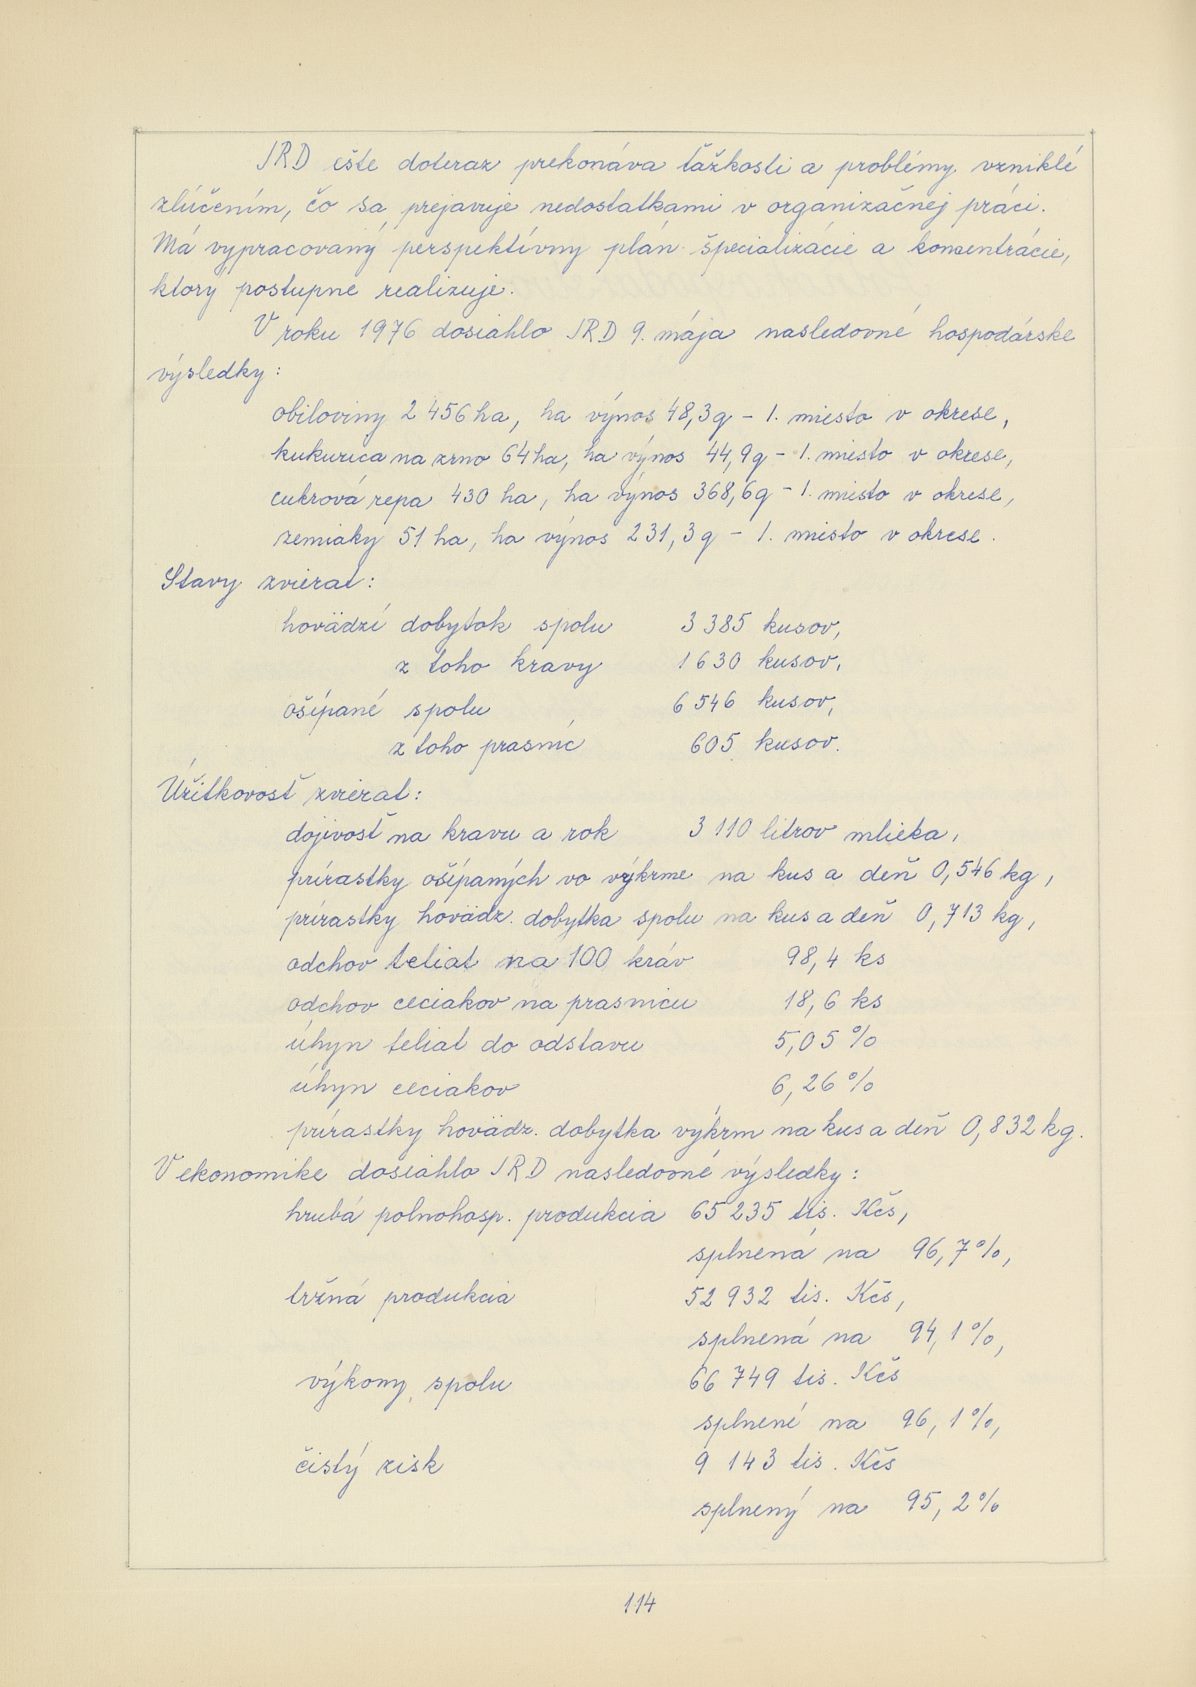 JRD ešte doteraz prekonáva ťažkosti a problémy vzniklé
zlúčením, čo sa prejavuje nedostatkami v organizačnej práci.
Má vypracovaný perspektívny plán špecializácie a koncentrácie,
ktorý postupne realizuje.
V roku 1976 dosiahlo JRD 9. mája nasledovné hospodárske
výsledky:
obiloviny 2 456 ha, ha výnos 48,3 q - 1. miesto v okrese,
kukurica na zrno 64 ha, ha výnos 44,9 q - 1. miesto v okrese,
cukrová repa 430 ha, ha výnos 368,6 q - 1. miesto v okrese,
zemiaky 51 ha, ha výnos 231,3 q - 1. miesto v okrese.
Stavy zvierat:
hovädzí dobytok spolu 3 385 kusov,
z toho kravy 1 630 kusov,
ošípané spolu 6 546 kusov,
z toho prasníc 605 kusov.
Úžitkovosť zvierat:
dojivosť na kravu a rok 3 110 litrov mlieka,
prírastky ošípaných vo výkrme na kus a deň 0,546 kg,
prírastky hovädz. dobytka spolu na kus a deň 0,713 kg,
odchov teliat na 100 kráv 98,4 ks
odchov ceciakov na prasnicu 18,6 ks
úhyn teliat do odstavu 5,05 %
úhyn ceciakov 6,26 %
prírastky hovädz. dobytka výkrm na kus a deň 0,832 kg.
V ekonomike dosiahlo JRD nasledovné výsledky:
hrubá polnohosp. produkcia 65 235 tis. Kčs,
splnená na 96,7 %,
tržná produkcia 52 932 tis. Kčs,
splnená na 94,1 %,
výkony spolu 66 749 tis. Kčs
splnené na 96,1 %,
čistý zisk 9 143 tis. Kčs
splnený na 95,2 %
114